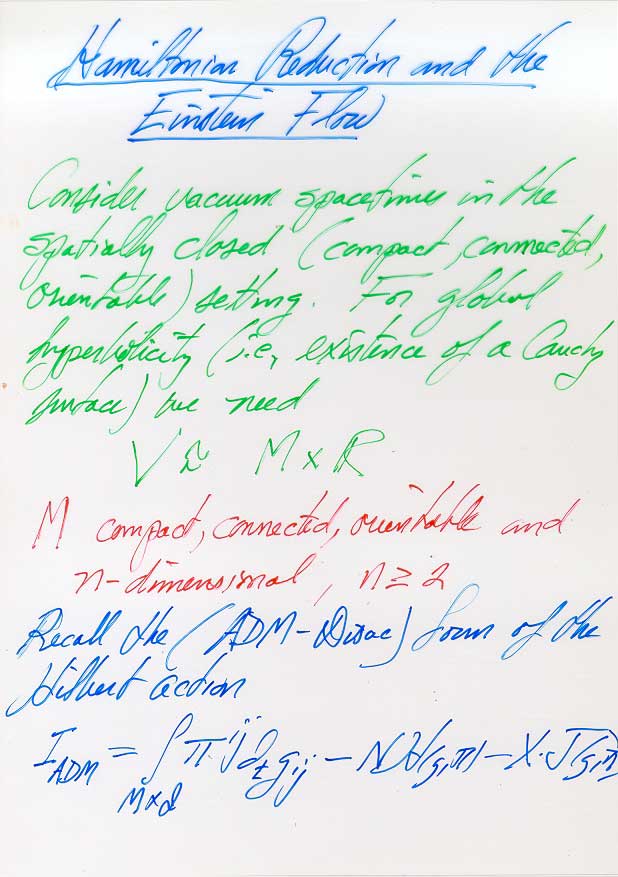 Hamiltonian Reduction and the
Einstein Flow
Consider vacuum spacetimes in the
spatially closed (compact, connected,
orientable) setting. For global
hyperbolicity (i.e, existence of a Cauchy
surface) we need
V ≈ M × R
M compact, connected, orientable and
n-dimensional, n ≥ 2
Recall the (ADM-Dirac) form of the
Hilbert action
I_ADM = ∫_{M×I} π^{ij} ∂_t g_{ij} − N H(g,π) − X·J(g,π)